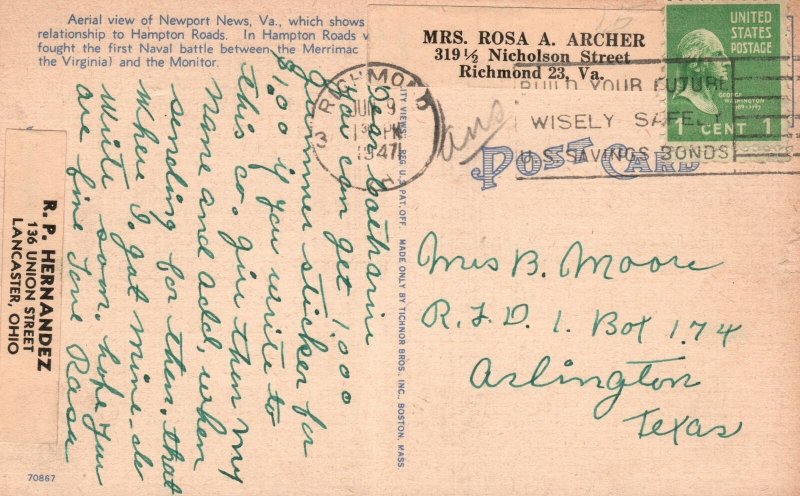 Aerial view of Newport News, Va., which shows
relationship to Hampton Roads. In Hampton Roads
fought the first Naval battle between the Merrimac
the Virginia) and the Monitor.
MRS. ROSA A. ARCHER
319½ Nicholson Street
Richmond 23, Va.
UNITED
STATES
POSTAGE
GEORGE
WASHINGTON
1789-1797
1 CENT 1
RICHMOND
JUN 9
PM
1947
VA
BUILD YOUR FUTURE
WISELY SAFELY
U.S. SAVINGS BONDS
ans.
POST CARD
Dear Catharine
you can get 1,000
grammer sticker for
$1.00 if you write to
this co. give them my
name and add, when
sending for them, that
where I gat mine. do
write soon, hope you
are fine Love Rosa
R. P. HERNANDEZ
136 UNION STREET
LANCASTER, OHIO
ITY VIEWS. REG. U.S. PAT. OFF. MADE ONLY BY TICHNOR BROS., INC., BOSTON, MASS.
Mrs B. Moore
R.F.D. 1. Box 174
Arlington
Texas
70867